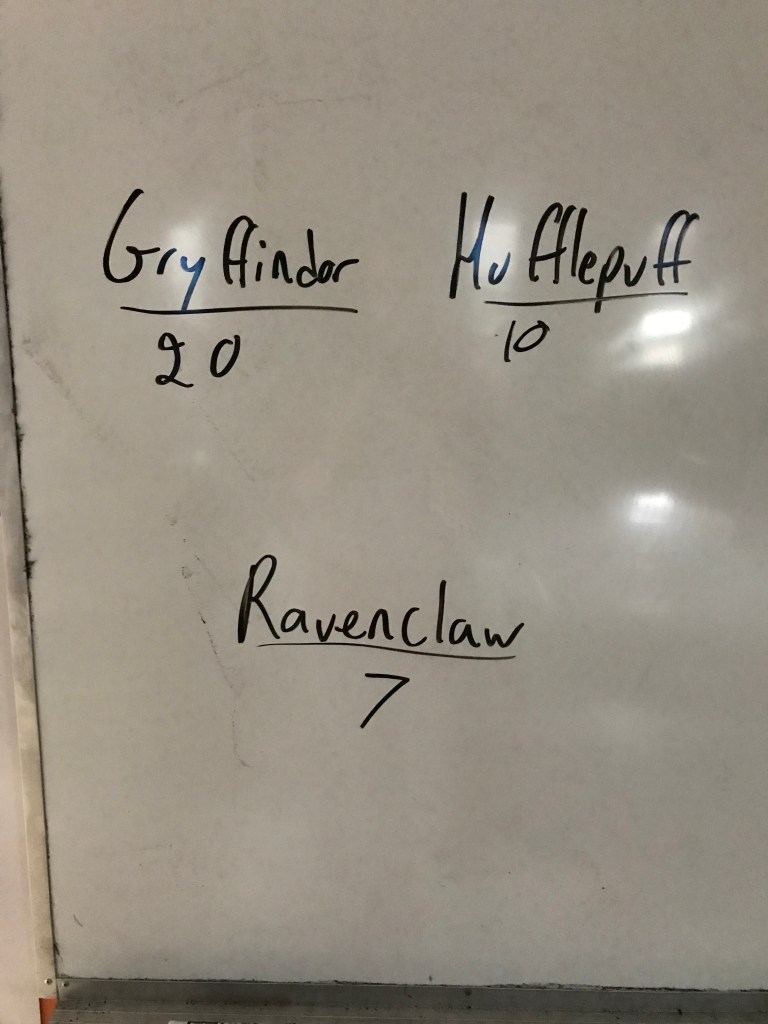 Gryffindor Hufflepuff
20 10
Ravenclaw
7